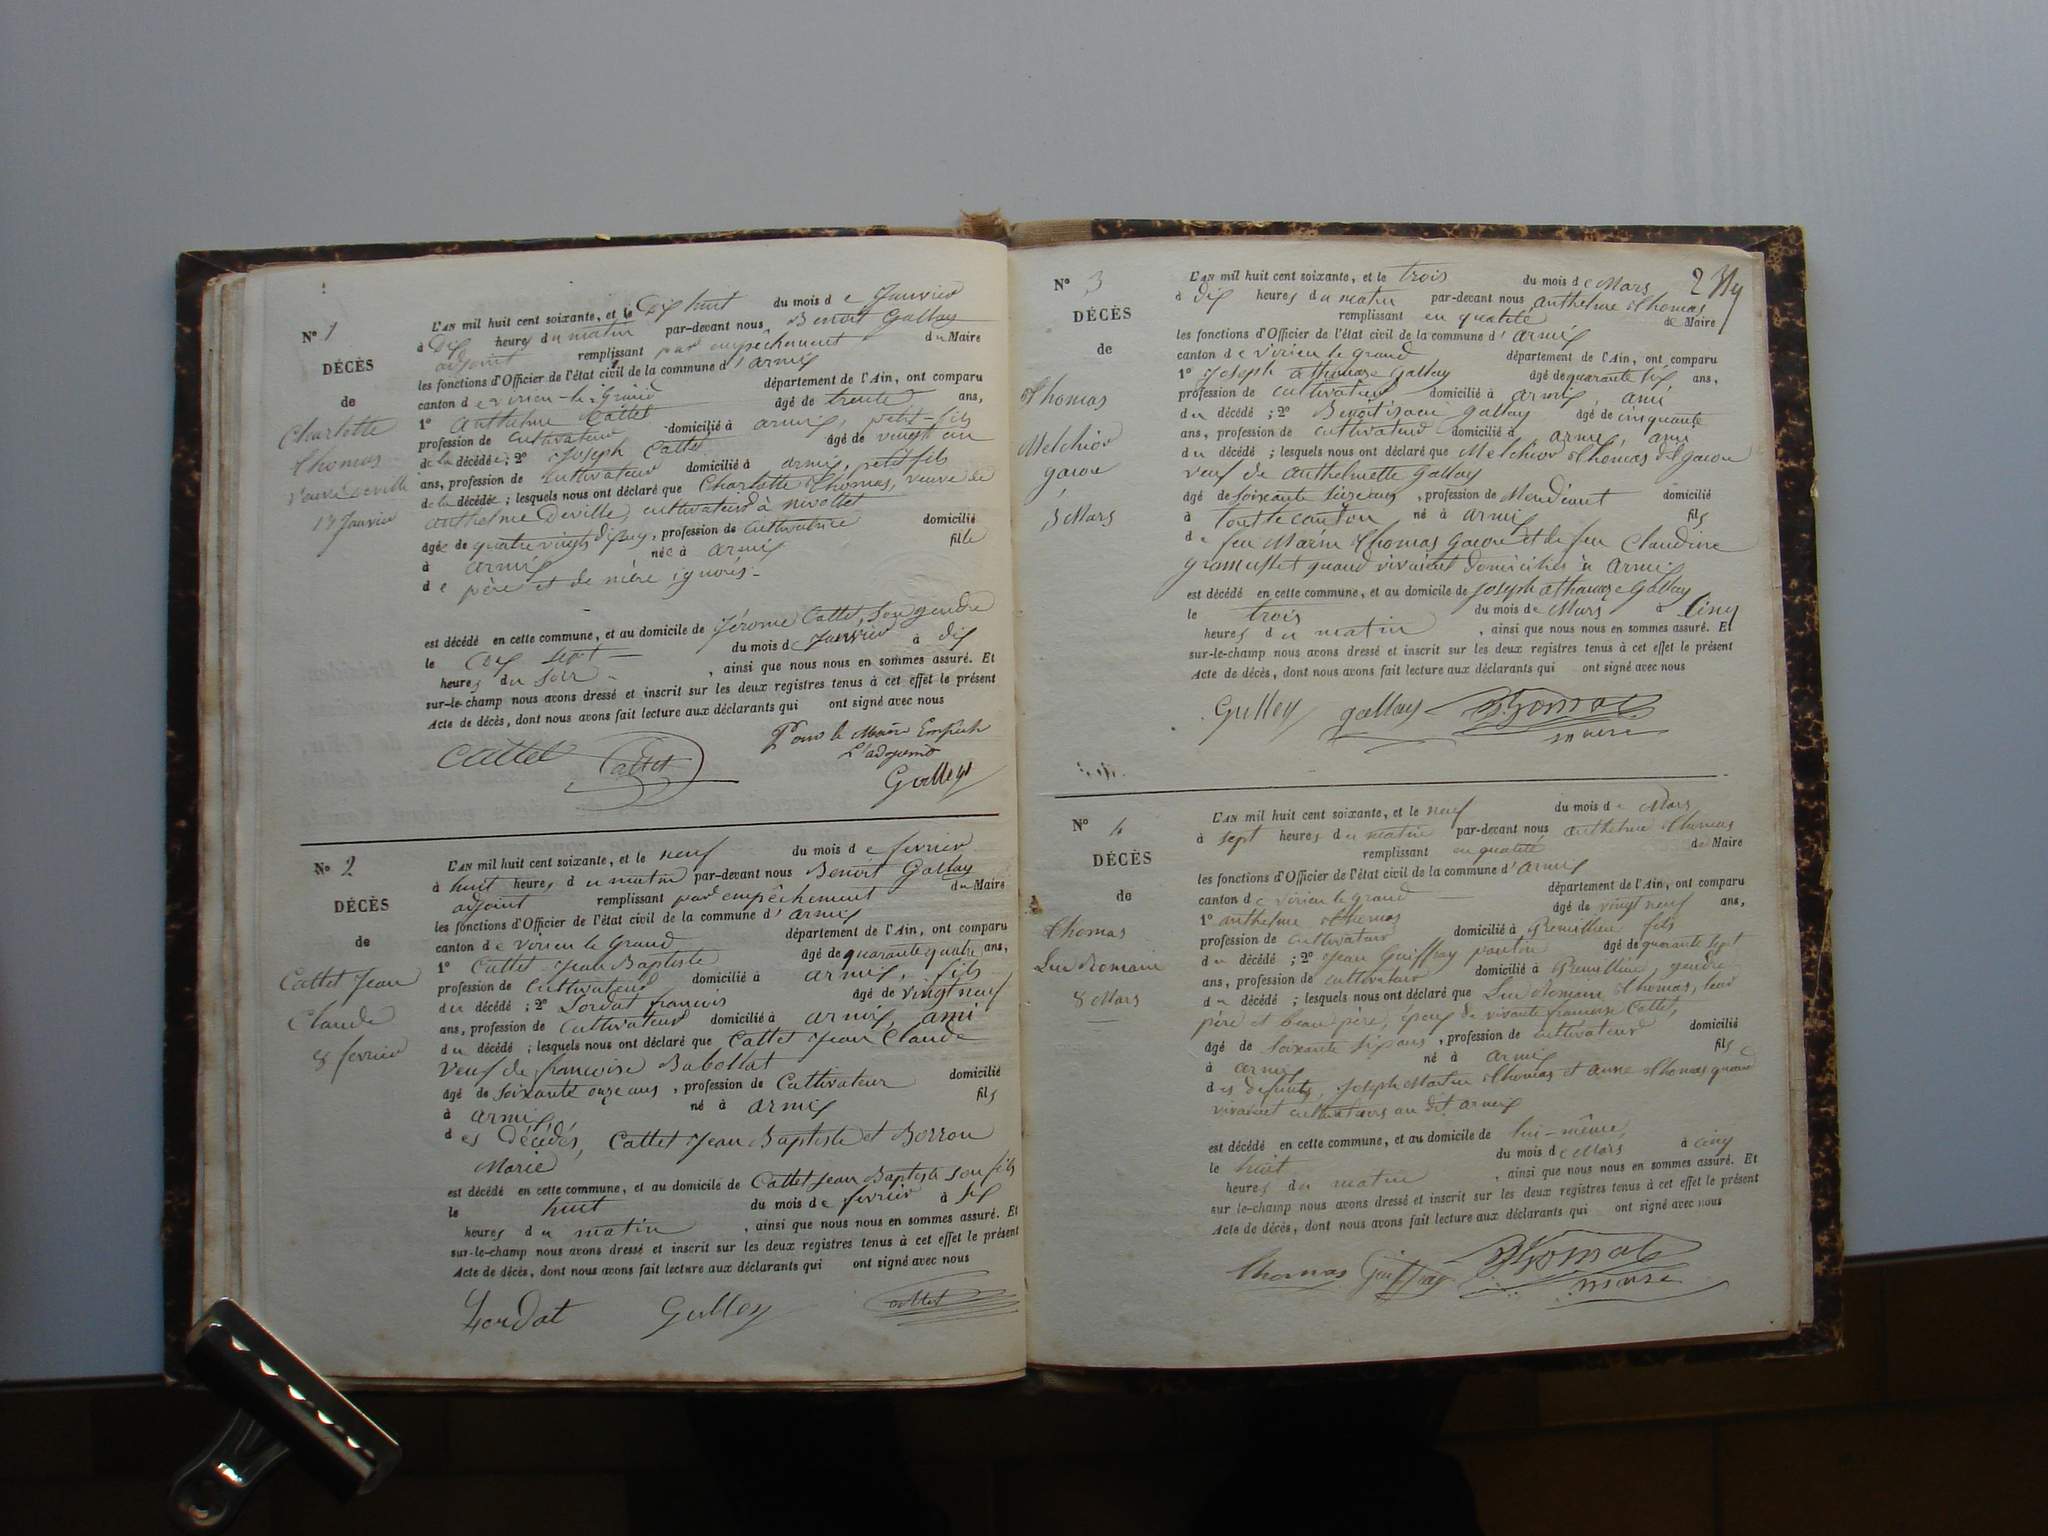 N° 1
DÉCÈS
de
Charlotte
Thomas
veuve Deville
17 Janvier
L'AN mil huit cent soixante, et le Dix huit du mois de Janvier
à Dix heures du matin par-devant nous Benoit Gallay
adjoint remplissant par empêchement du Maire
les fonctions d'Officier de l'état civil de la commune d'armix
canton de virieu-le-Grand département de l'Ain, ont comparu
1° Anthelme Cattet âgé de trente ans,
profession de cultivateur domicilié à armix, petit-fils
de la décédée; 2° Joseph Cattet âgé de vingt un
ans, profession de cultivateur domicilié à armix, petit fils
de la décédée; lesquels nous ont déclaré que Charlotte Thomas, veuve de
anthelme Deville, cultivateur à nivollet
âgée de quatre vingts , profession de cultivatrice domicilié
à armix née à armix fille
de père et de mère ignorés
est décédé en cette commune, et au domicile de Jérome Cattet, son gendre
le Dix sept du mois de Janvier à dix
heures du soir, ainsi que nous nous en sommes assuré. Et
sur-le-champ nous avons dressé et inscrit sur les deux registres tenus à cet effet le présent
Acte de décès, dont nous avons fait lecture aux déclarants qui ont signé avec nous
Pour le Maire Empêch
Cattet Cattet L'adjoint
Galley
N° 2
DÉCÈS
de
Cattet Jean
Claude
8 fevrier
L'AN mil huit cent soixante, et le neuf du mois de fevrier
à huit heures du matin par-devant nous Benoit Gallay
adjoint remplissant par empêchement du Maire
les fonctions d'Officier de l'état civil de la commune d'armix
canton de virieu le Grand département de l'Ain, ont comparu
1° Cattet Jean Baptiste âgé de quarante quatre ans,
profession de cultivateur domicilié à armix, fils
du décédé; 2° Lordat francois âgé de vingt neuf
ans, profession de cultivateur domicilié à armix, ami
du décédé; lesquels nous ont déclaré que Cattet Jean Claude
veuf de francoise Babollat
âgé de soixante onze ans, profession de Cultivateur domicilié
à armix, né à armix fils
des décédés, Cattet Jean Baptiste et Borron
Marie
est décédé en cette commune, et au domicile de Cattet Jean Baptiste son fils
le huit du mois de fevrier à six
heures du matin, ainsi que nous nous en sommes assuré. Et
sur-le-champ nous avons dressé et inscrit sur les deux registres tenus à cet effet le présent
Acte de décès, dont nous avons fait lecture aux déclarants qui ont signé avec nous
Lordat Galley Cattet
2
N° 3
DÉCÈS
de
Thomas
Melchior
gavou
3 Mars
L'AN mil huit cent soixante, et le trois du mois de Mars
à Dix heures du matin par-devant nous anthelme Thomas
remplissant en qualité de Maire
les fonctions d'Officier de l'état civil de la commune d'armix
canton de virieu le grand département de l'Ain, ont comparu
1° Joseph athanase Gallay âgé de quarante six ans,
profession de cultivateur domicilié à armix, ami
du décédé; 2° Benoit gallay âgé de cinquante
ans, profession de cultivateur domicilié à armix, ami
du décédé; lesquels nous ont déclaré que Melchior Thomas dit gavou
veuf de anthelmette Gallay
âgé de soixante seize ans, profession de Mendiant domicilié
à tout le canton né à armix fils
de feu Marin Thomas gavou et de feu Claudine
quand vivaient domiciliés à armix
est décédé en cette commune, et au domicile de Joseph athanase Gallay
le trois du mois de Mars à Cinq
heures du matin, ainsi que nous nous en sommes assuré. Et
sur-le-champ nous avons dressé et inscrit sur les deux registres tenus à cet effet le présent
Acte de décès, dont nous avons fait lecture aux déclarants qui ont signé avec nous
Galley gallay Thomas
maire
N° 4
DÉCÈS
de
Thomas
Luc Romain
8 Mars
L'AN mil huit cent soixante, et le neuf du mois de Mars
à sept heures du matin par-devant nous anthelme Thomas
remplissant en qualité de Maire
les fonctions d'Officier de l'état civil de la commune d'armix
canton de virieu le grand département de l'Ain, ont comparu
1° anthelme Thomas âgé de vingt neuf ans,
profession de cultivateur domicilié à Premillieu fils
du décédé; 2° Jean Guiffray âgé de quarante sept
ans, profession de cultivateur domicilié à Premillieu, gendre
du décédé; lesquels nous ont déclaré que Luc Romain Thomas, leur
père et beau père, époux de vivante francoise Cattet,
âgé de soixante six ans, profession de cultivateur domicilié
à armix né à armix fils
des défunts, Joseph Martin Thomas et anne Thomas quand
vivaient cultivateurs au dit armix
est décédé en cette commune, et au domicile de lui-même,
le huit du mois de Mars à cinq
heures du matin, ainsi que nous nous en sommes assuré. Et
sur le-champ nous avons dressé et inscrit sur les deux registres tenus à cet effet le présent
Acte de décès, dont nous avons fait lecture aux déclarants qui ont signé avec nous
Thomas Guiffray Thomas
maire